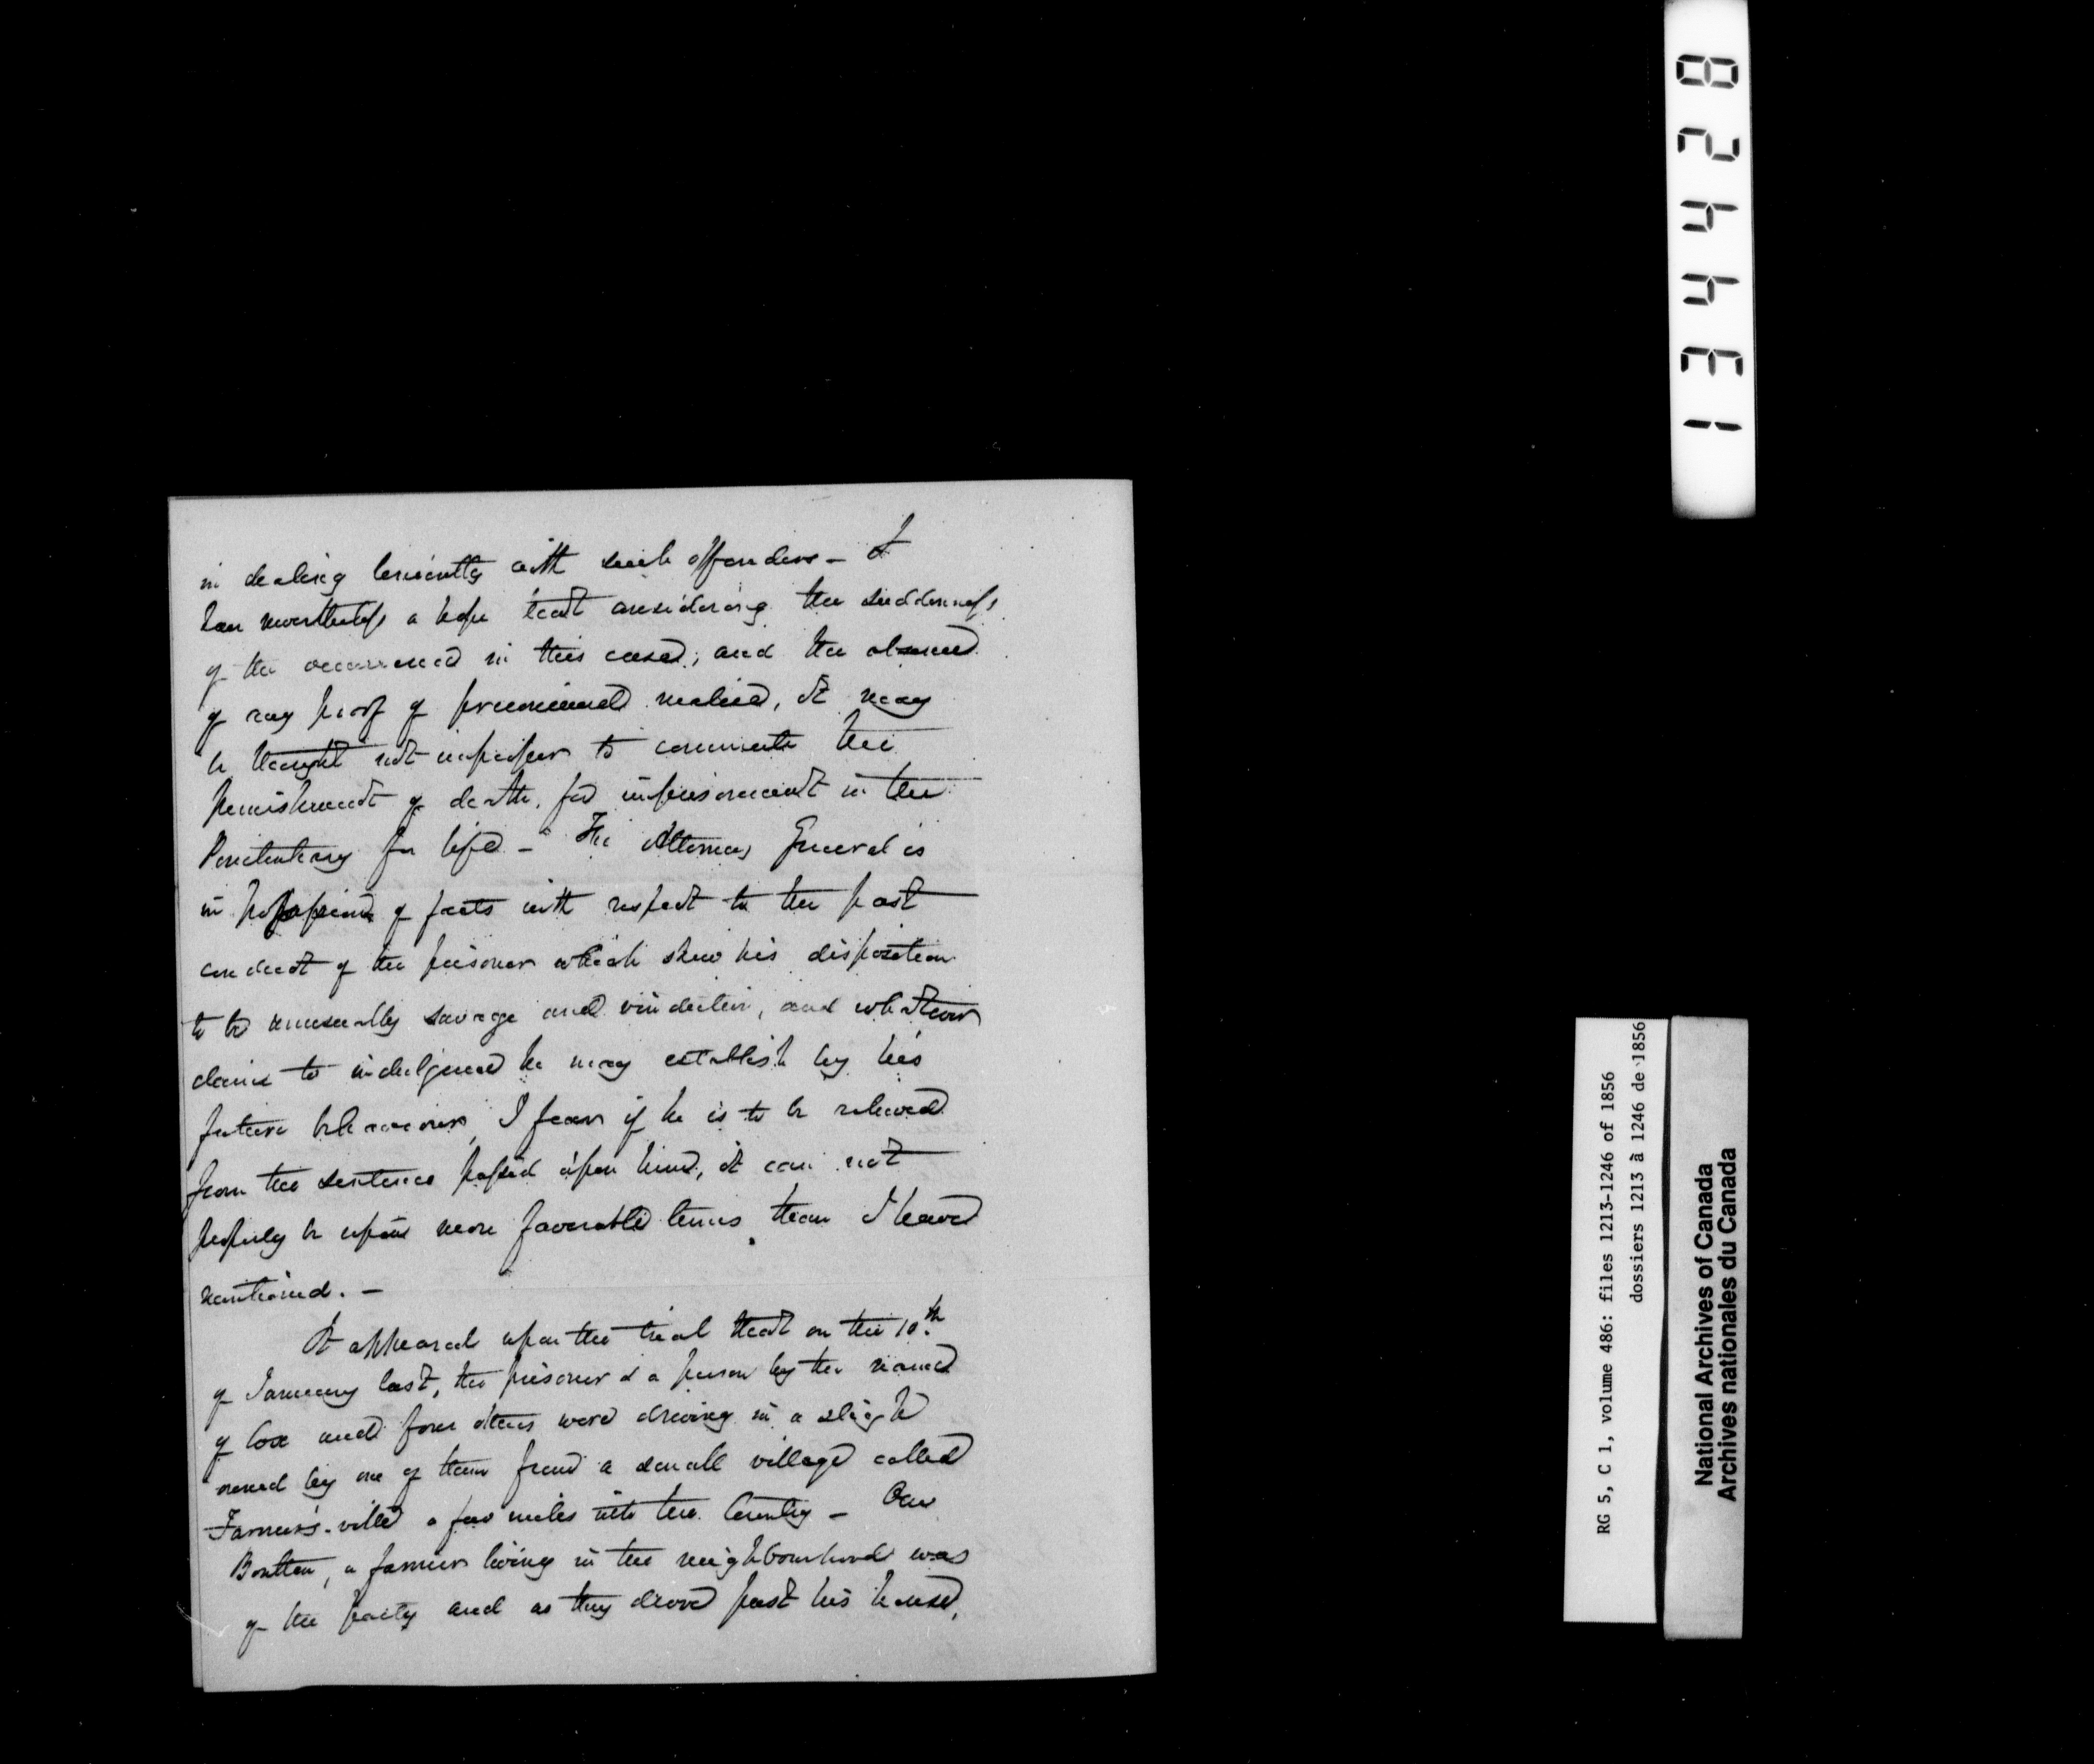 in dealing leniently with such offenders – I
have nevertheless a hope that considering the suddenness
of the occurrence in this case, and the absence
of any proof of preconceived malice, it may
be thought not improper to commute the
punishment of death, for imprisonment in the
Penitentiary for life – The Attorney General is
in possession of facts with respect to the past
conduct of the prisoner which shew his disposition
to be unusually savage and vindictive, and whatever
claims to indulgence he may establish by his
future behaviour, I fear if he is to be relieved
from the sentence passed upon him, it can not
properly be upon more favorable terms than I have
mentioned. –
It appeared upon the trial that on the 10th
of January last, the prisoner & a person by the name
of Cox and four others were driving in a sleigh
owned by one of them from a small village called
Farmers-ville a few miles into the Country – One
Boulton, a farmer living in the neighbourhood was
of the party and as they drove past his house,
134428
RG 5, C 1, volume 486: files 1213-1246 of 1856
dossiers 1213 à 1246 de 1856
National Archives of Canada
Archives nationales du Canada